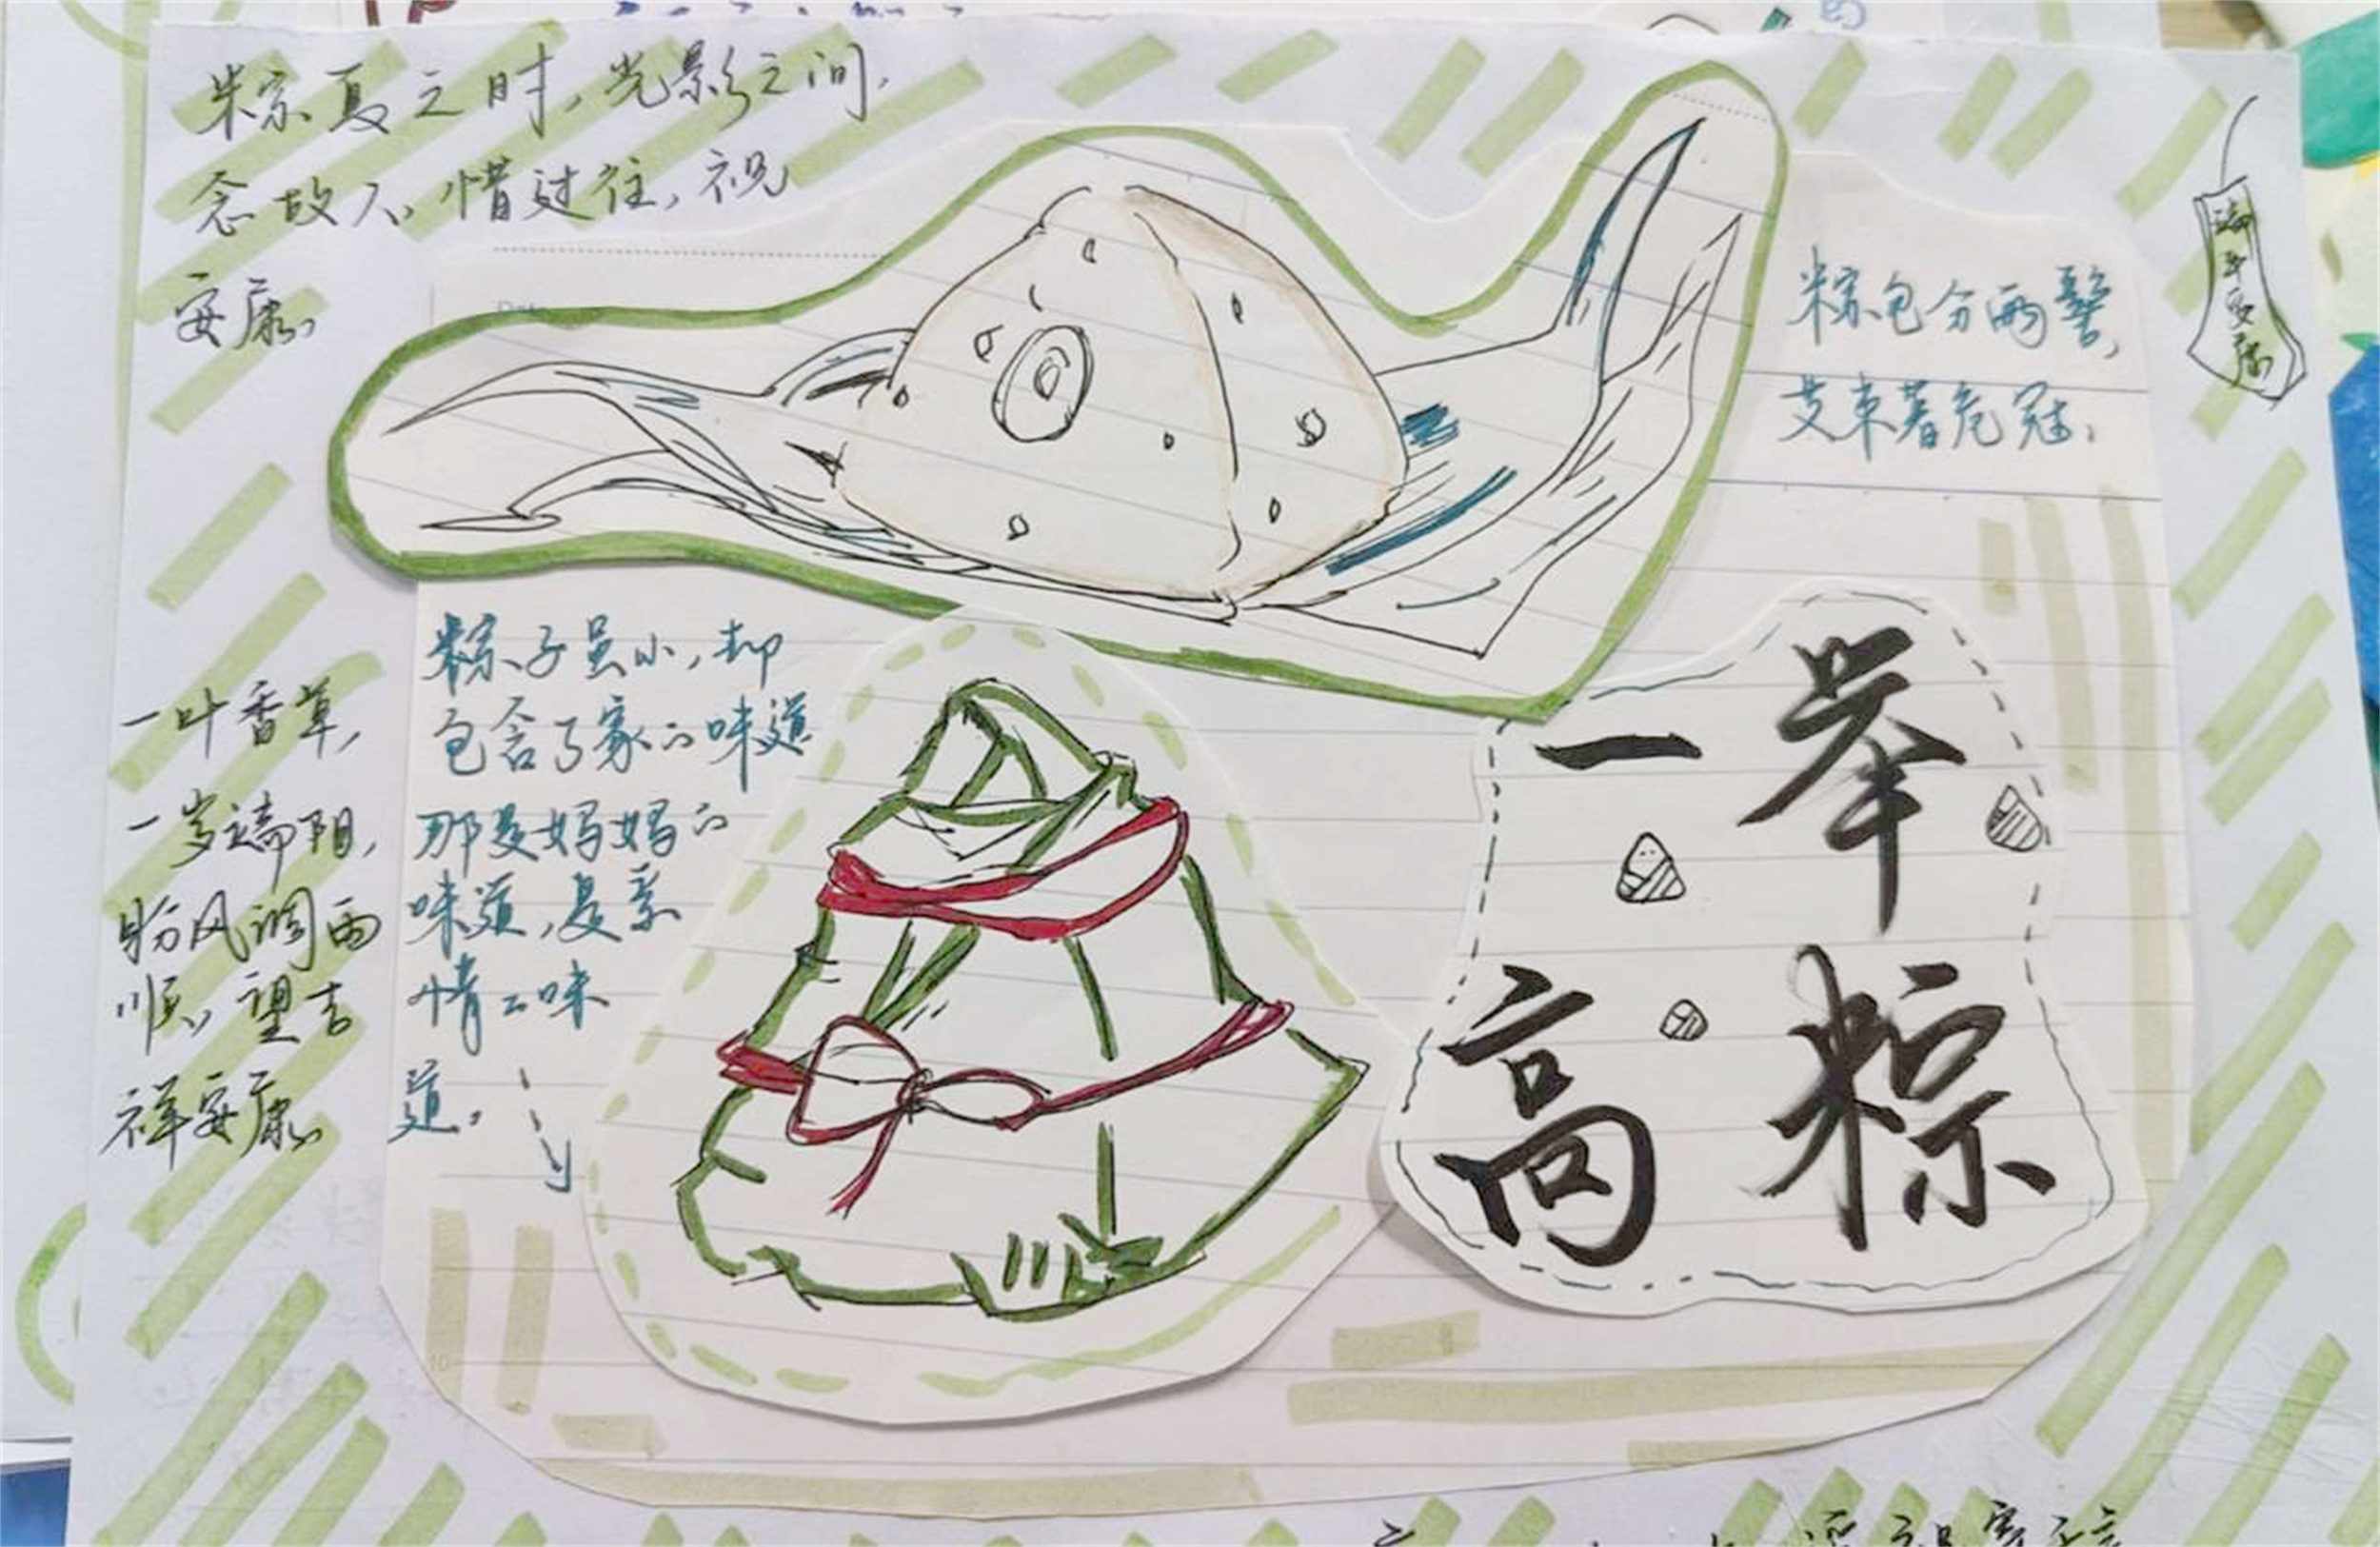 粽夏之时，光影之间，
念故人，惜过往，祝
安康。
粽包分两髻，
艾束著危冠。
端午安康
粽子虽小，却
包含了家的味道
那是妈妈的
味道，是亲
情的味
道。
一叶香草，
一岁端阳，
盼风调雨
顺，望吉
祥安康。
一举
高粽